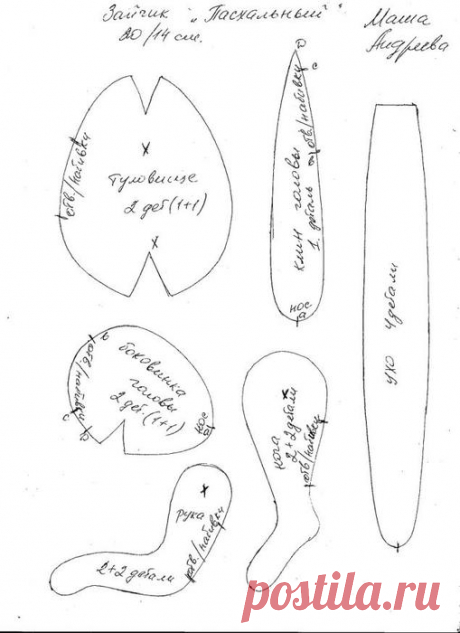 Зайчик „Пасхальный"
20/14 см.
Маша
Андреева
отв./набивки
х
туловище
2 дет (1+1)
х
о
с
отв/набивки
клин головы
1 деталь
нос
а
ухо 4 детали
в
отв/набивки
с
о
боковинка
головы
2 дет. (1+1)
нос
а
х
нога
2+2 детали
отв/набивки
х
рука
отв/набивки
2+2 детали
postila.ru